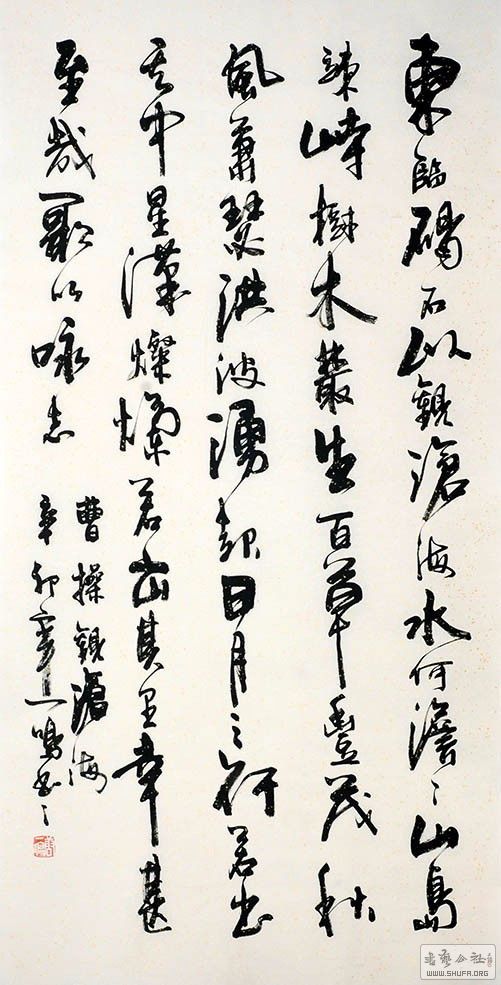 東臨碣石以觀滄海水何澹〻山島
竦峙樹木叢生百草豐茂秋
風蕭瑟洪波湧起日月之行若出
其中星漢燦爛若出其里幸甚
至哉歌以咏志
曹操觀滄海
辛卯一鳴書之
書藝公社
WWW.SHUFA.ORG